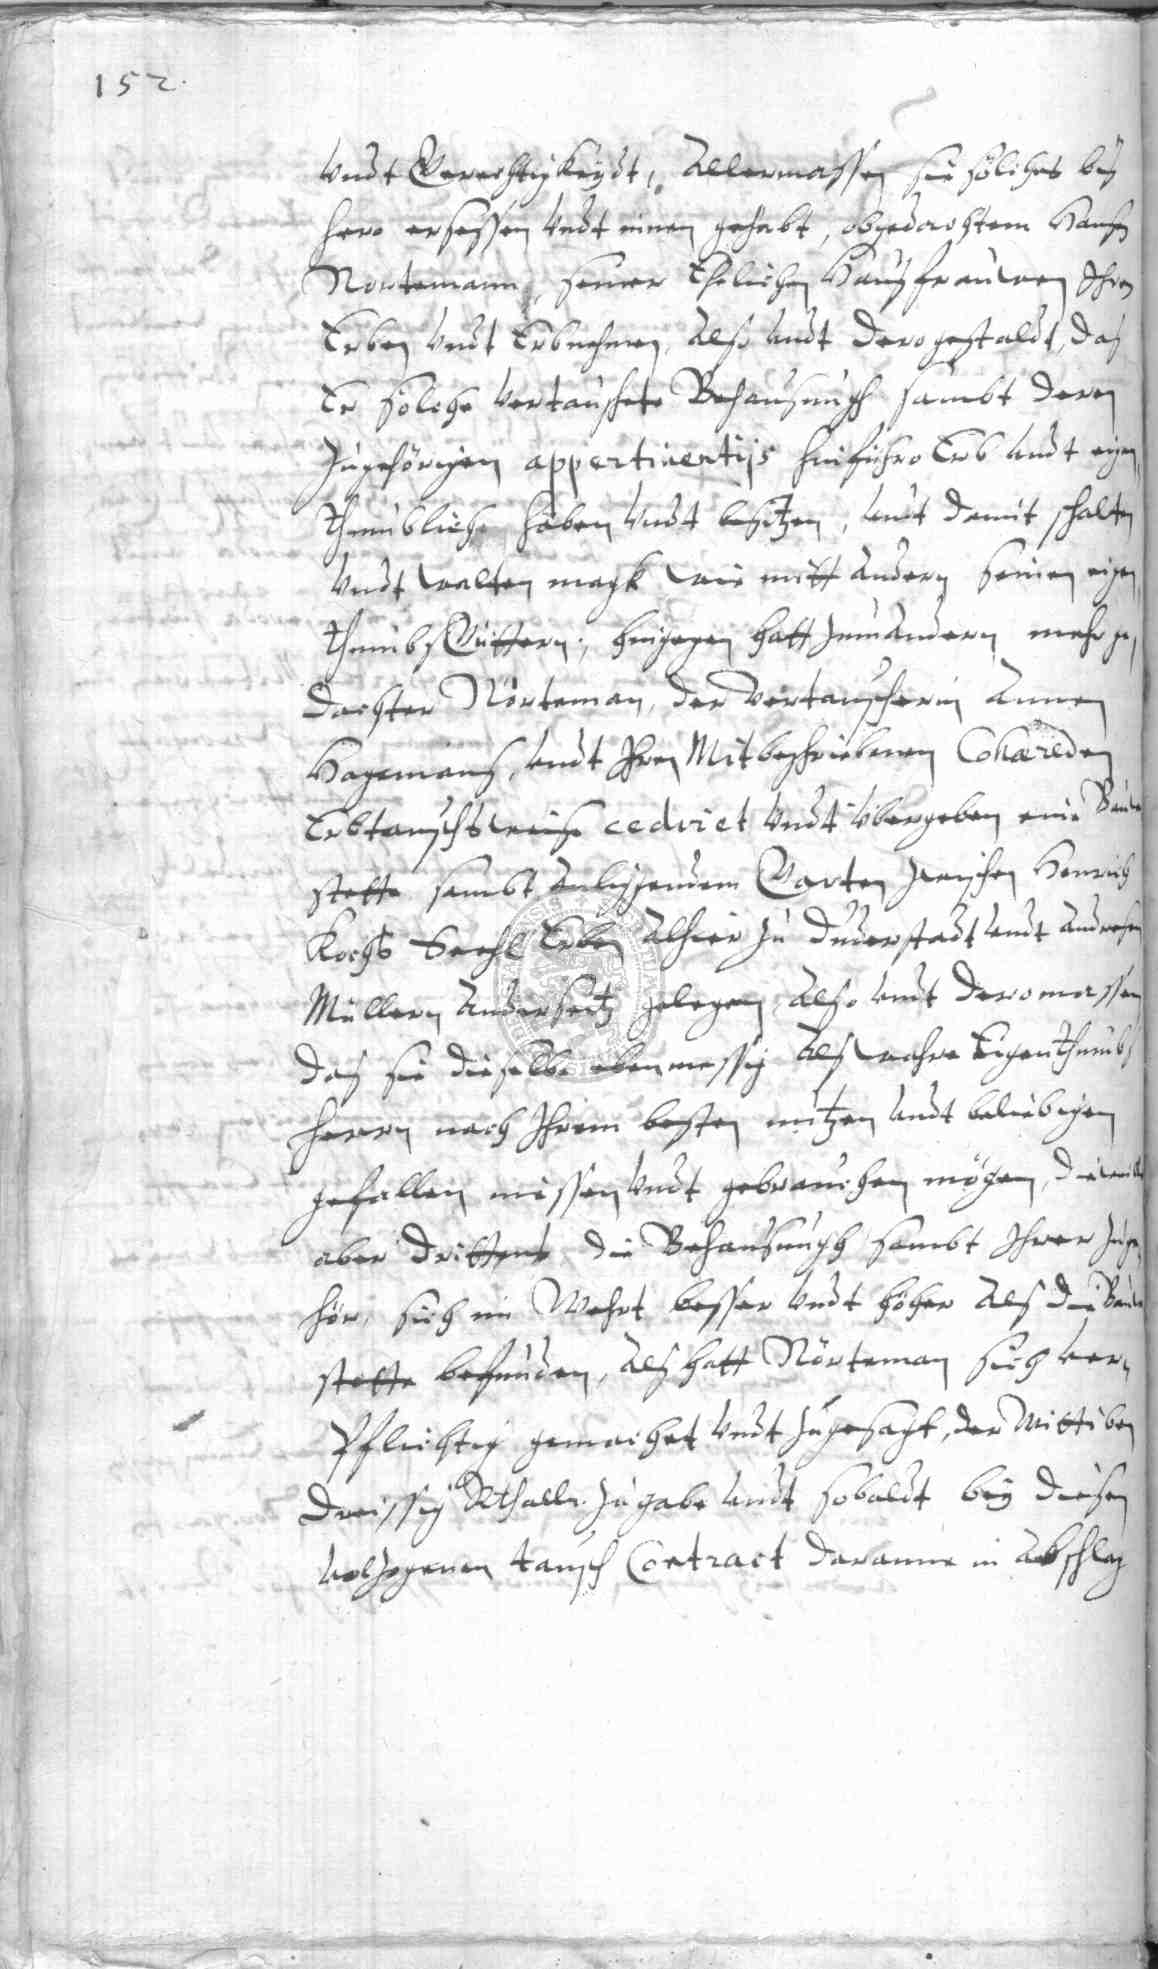 152.
Vndt Gerechtigkeydt, Allermassen sie solches biß
hero ersessen Vndt innen gehabt, obgedachtem Hansen
Nortemann, seiner Ehelichen Haußfrauwen Ihren
Erben Vndt Erbnehmen, Also Vndt dero gestaldt, daß
Er solche vertauschete Behausungh sambt deren
Zugehörigen appertinentijs hinführo Erb Vndt eigen,
thumbliche haben Vndt besitzen, Vndt damit schalten
Vndt walten magk wie mitt andern seinen eigen,
thumbs Güttern; hingegen hatt Zum Andern mehr ge,
dachter Nörteman, der Vertauscherin Annen
Hagemans, Vndt Ihren Mitbeschriebenen Cohæreden
Erbtauschsweise cediret Vndt Vbergeben eine Bauw
stette sambt anligendem Garten zwischen Henrich
Kochs Seehl Erben Alhier zu Duderstadt Vndt Andresen
Müllern Anderseitz gelegen, Also Vndt deromassen
daß sie dieselbe ebenmessig Alß wahre Eigenthumbs
herrn nach Ihrem besten nutzen Vndt beliebigen
gefallen niessen Vndt gebrauchen mögen, dieweill
aber drittens die Behausungh sambt Ihrer Zuge,
hör, sich im Wehrt besser Vndt höher Alß die Bauw
stette befunden, Alß hatt Nörteman sich ver,
Pflichtig gemachet Vndt zugesagt, der Wittiben
dreissig Rthaler Zugabe Vndt sobaldt bey diesen
Volzogenen tausch Contract daranne in Abschlag